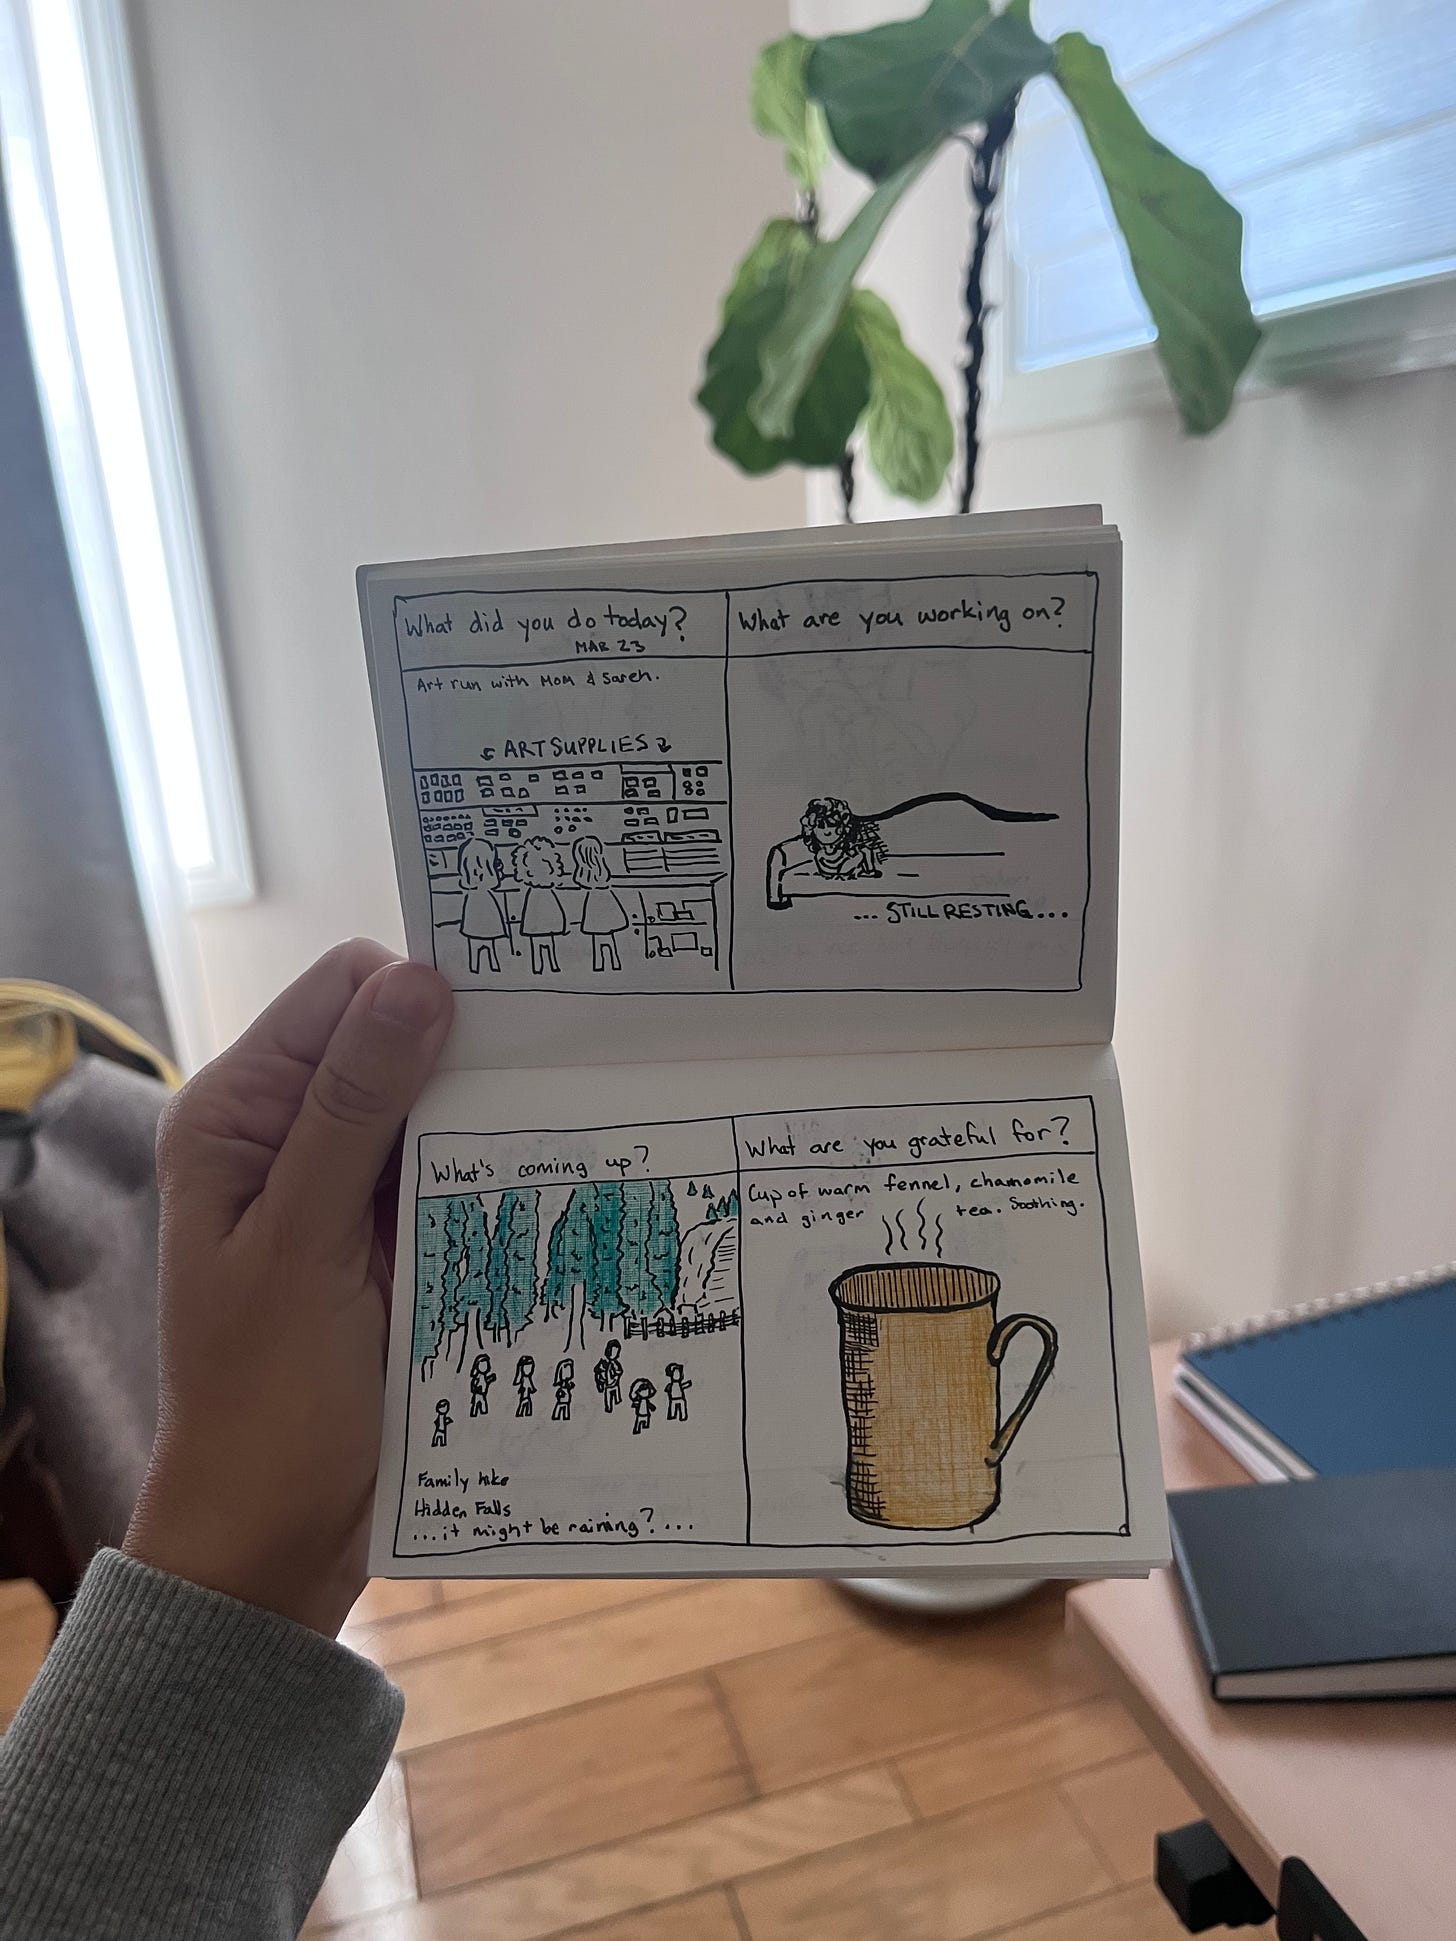 What did you do today?
MAR 23
Art run with Mom & Sareh.
ART SUPPLIES
What are you working on?
... STILL RESTING...
What's coming up?
Family hike
Hidden Falls
...it might be raining?...
What are you grateful for?
Cup of warm fennel, chamomile
and ginger tea. Soothing.